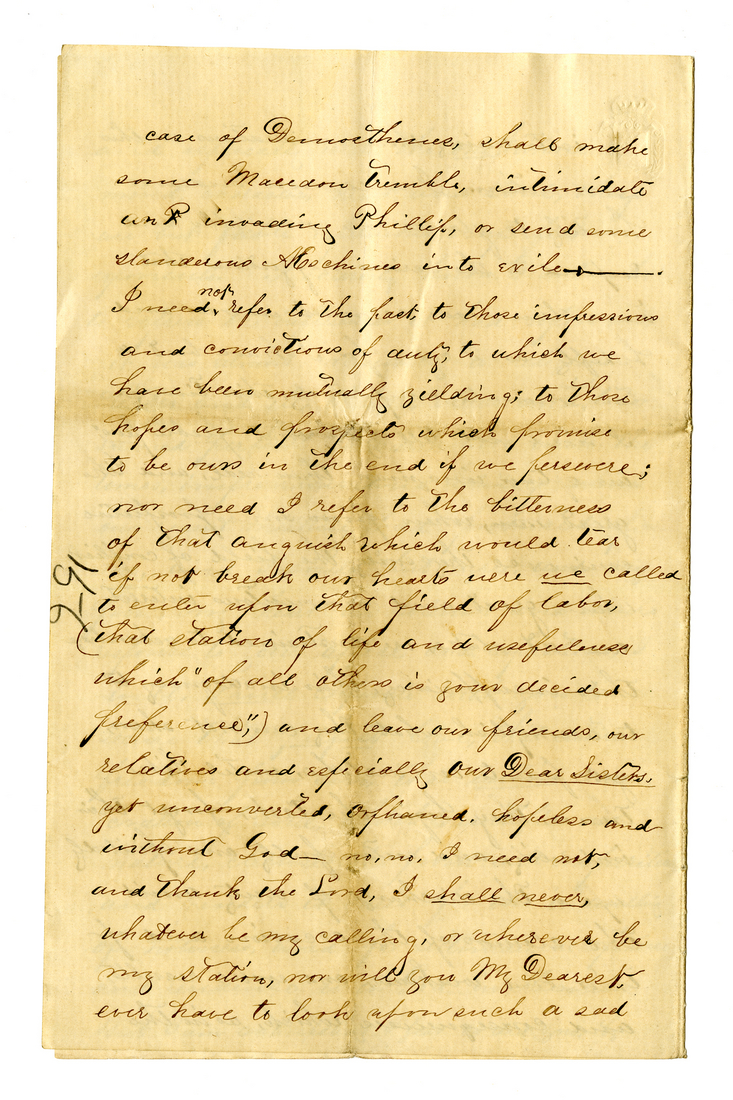 case of Demosthenes, shall make
some Macedon tremble, intimidate
an invading Phillip, or send some
slanderous Æschines into exile.
I need not refer to the past, to those impressions
and convictions of duty, to which we
have been mutually yielding; to those
hopes and prospects which promise
to be ours in the end if we persevere;
nor need I refer to the bitterness
of that anguish which would tear
if not break our hearts were we called
to enter upon that field of labor,
(that station of life and usefulness
which "of all others is your decided
preference",) and leave our friends, our
relatives and especially our Dear Sisters,
yet unconverted, orphaned, hopeless and
without God— no, no, I need not,
and thank the Lord, I shall never,
whatever be my calling, or wherever be
my station, nor will you My Dearest,
ever have to look upon such a sad